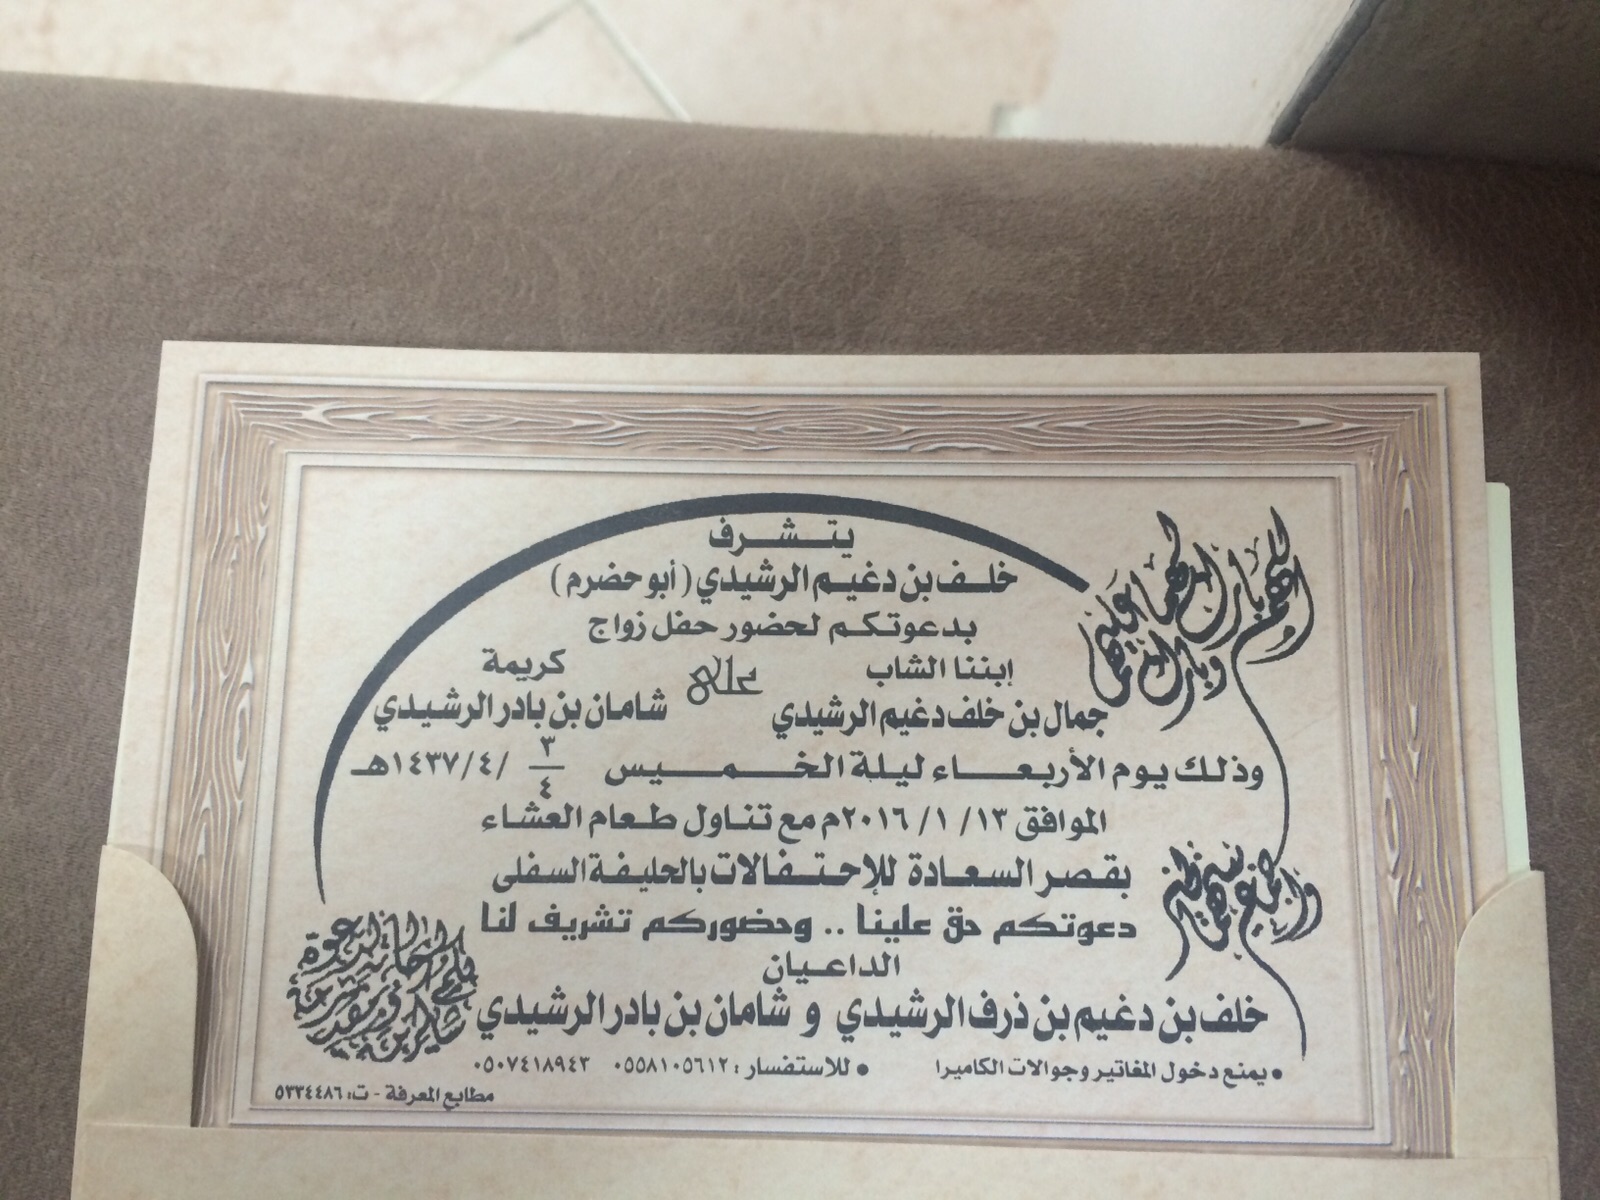 اللهم بارك لهما وبارك عليهما
واجمع بينهما في خير
يتشرف
خلف بن دغيم الرشيدي ( أبو حضرم )
بدعوتكم لحضور حفل زواج
إبننا الشاب على كريمة
جمال بن خلف دغيم الرشيدي شامان بن بادر الرشيدي
وذلك يوم الأربعاء ليلة الخميس ٣/٤ /٤/١٤٣٧هـ
الموافق ١٣ /١ /٢٠١٦م مع تناول طعام العشاء
بقصر السعادة للإحتفالات بالحليفة السفلى
دعوتكم حق علينا .. وحضوركم تشريف لنا
الداعيان
خلف بن دغيم بن ذرف الرشيدي و شامان بن بادر الرشيدي
• يمنع دخول المفاتير وجوالات الكاميرا • للاستفسار : ٠٥٥٨١٠٥٦١٢ ٠٥٠٧٤١٨٩٤٣
مطابع المعرفة - ت: ٥٣٣٤٤٨٦